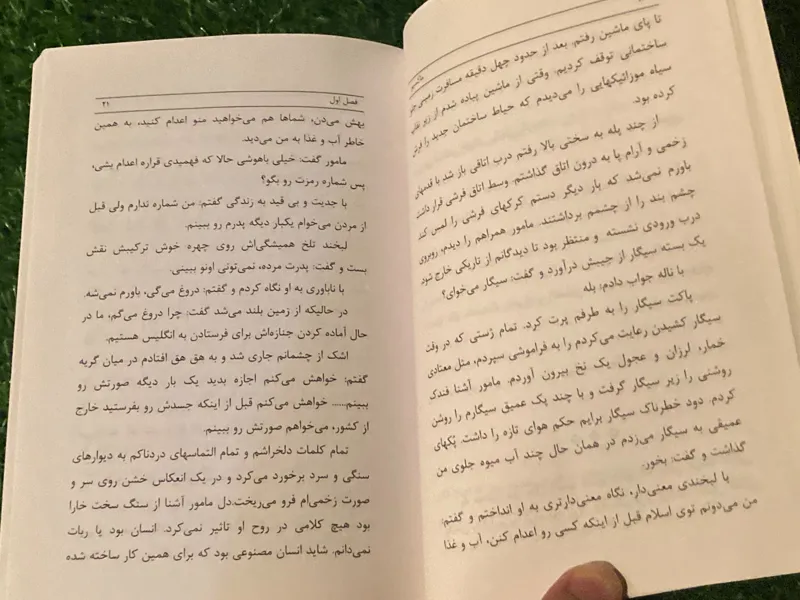 تا پای ماشین رفتم. بعد از حدود چهل دقیقه مسافرت زمینی جلو
ساختمانی توقف کردیم. وقتی از ماشین پیاده شدم از زیر نقاب
سیاه موزائیکهایی را می‌دیدم که حیاط ساختمان جدید را فرش
کرده بود.
از چند پله به سختی بالا رفتم درب اتاقی باز شد با قدمهای
زخمی و آرام پا به درون اتاق گذاشتم. وسط اتاق فرشی قرار داشت
باورم نمی‌شد که بار دیگر دستم کرکهای فرشی را لمس کند
چشم بند را از چشمم برداشتند. مامور همراهم را دیدم، روبروی
درب ورودی نشسته و منتظر بود تا دیدگانم از تاریکی خارج شود
یک بسته سیگار از جیبش درآورد و گفت: سیگار می‌خوای؟
با ناله جواب دادم: بله
پاکت سیگار را به طرفم پرت کرد. تمام ژستی که در وقت
سیگار کشیدن رعایت می‌کردم را به فراموشی سپردم، مثل معتادی
خمار، لرزان و عجول یک نخ بیرون آوردم. مامور آشنا فندک
روشنی را زیر سیگار گرفت و با چند پک عمیق سیگارم را روشن
کردم. دود خطرناک سیگار برایم حکم هوای تازه را داشت. پُکهای
عمیقی به سیگار می‌زدم در همان حال چند آب میوه جلوی من
گذاشت و گفت: بخور.
با لبخندی معنی‌دار، نگاه معنی‌دارتری به او انداختم و گفتم:
من می‌دونم توی اسلام قبل از اینکه کسی رو اعدام کنن، آب و غذا
فصل اول ۲۱
بهش می‌دن، شماها هم می‌خواهید منو اعدام کنید، به همین
خاطر آب و غذا به من می‌دید.
مامور گفت: خیلی باهوشی حالا که فهمیدی قراره اعدام بشی،
پس شماره رمزت رو بگو؟
با جدیت و بی قید به زندگی گفتم: من شماره ندارم ولی قبل
از مردن می‌خوام یکبار دیگه پدرم رو ببینم.
لبخند تلخ همیشگی‌اش روی چهره خوش ترکیبش نقش
بست و گفت: پدرت مرده، نمی‌تونی اونو ببینی.
با ناباوری به او نگاه کردم و گفتم: دروغ می‌گی، باورم نمی‌شه.
در حالیکه از زمین بلند می‌شد گفت: چرا دروغ می‌گم، ما در
حال آماده کردن جنازه‌اش برای فرستادن به انگلیس هستیم.
اشک از چشمانم جاری شد و به هق هق افتادم در میان گریه
گفتم: خواهش می‌کنم اجازه بدید یک بار دیگه صورتش رو
ببینم..... خواهش می‌کنم قبل از اینکه جسدش رو بفرستید خارج
از کشور، می‌خواهم صورتش رو ببینم.
تمام کلمات دلخراشم و تمام التماسهای دردناکم به دیوارهای
سنگی و سرد برخورد می‌کرد و در یک انعکاس خشن روی سر و
صورت زخمی‌ام فرو می‌ریخت.دل مامور آشنا از سنگ سخت خارا
بود هیچ کلامی در روح او تاثیر نمی‌کرد. انسان بود یا ربات
نمی‌دانم. شاید انسان مصنوعی بود که برای همین کار ساخته شده